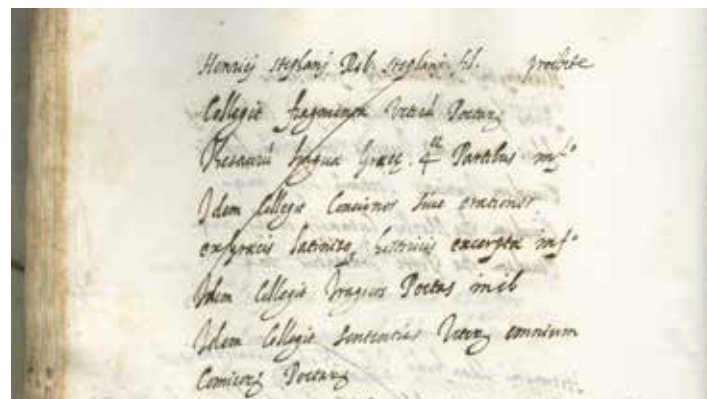 Henrici Stephani Rob. Stephani fil. proibite
Collegit fragmenta Veterũ Poetarʒ
Thesaurũ linguæ Græcę. 4ᵒʳ Partibus in fº
Idem Collegit Conciones siue orationes
ex græcis latinisqʒ historicis excerptæ in fº
Idem Collegit tragicos Poetas in
Idem Collegit sententias Veterʒ omnium
Comicorʒ Poetarʒ